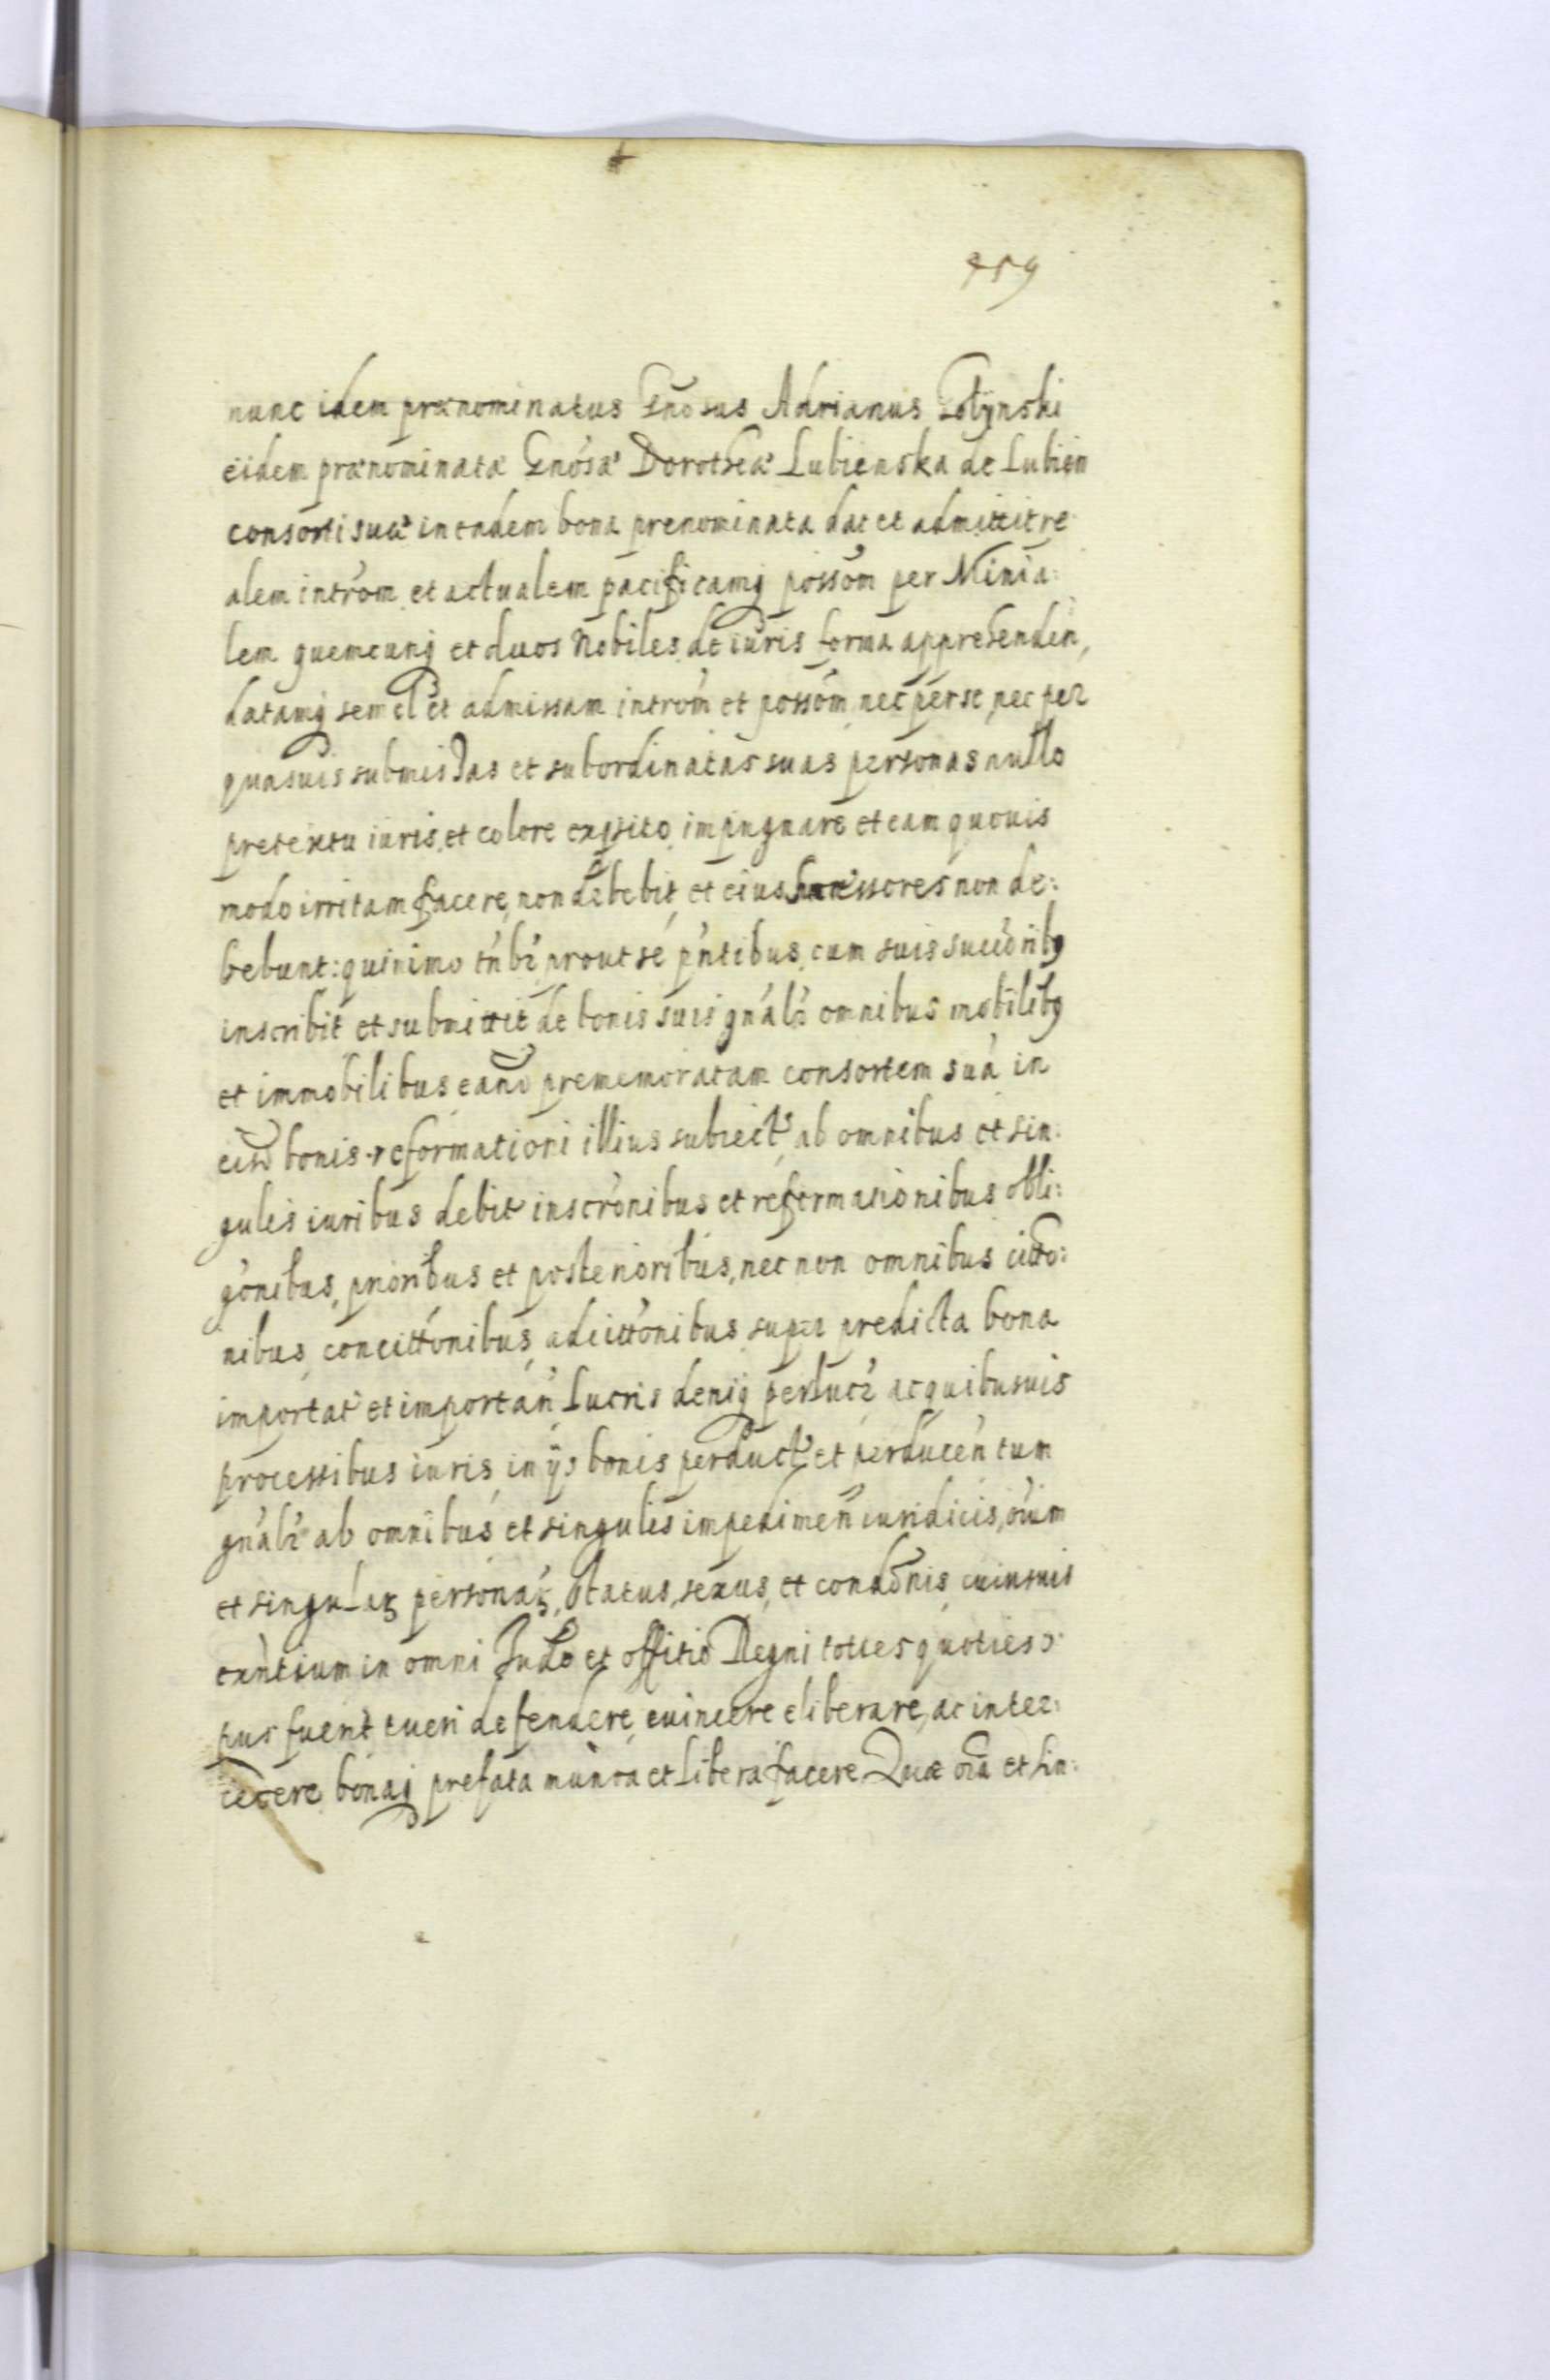 759
nunc idem prænominatus Gnosus Adrianus Golÿnski
eidem prænominatæ Gnosæ Dorotheæ Lubienska de Lubien
consorti suæ in eadem bona prenominata dat et admittit re
alem introm et actualem pacificamq possom per Minia:
lem quemcunq et duos Nobiles de iuris forma apprehenden,
datamq semel et admissam introm et possom nec per se, nec per
quasuis submissas et subordinatas suas personas nullo
pretextu iuris, et colore exqsito impugnare et eam quouis
modo irritam facere, non debebit, et eius successores non de:
bebunt: quinimo tnbr prout se pntibus cum suis succoribq
inscribit et submittit de bonis suis gnalr omnibus mobilibq
et immobilibus eand prememoratam consortem suā in
eisd bonis reformationi illius subiect ab omnibus et sin:
gulis iuribus debit inscronibus et reformationibus obli:
gonibus, prioribus et posterioribus, nec non omnibus citto:
nibus concittonibus adcittonibus super predicta bona
importat et importan Lucris deniq perluct ac quibusuis
processibus iuris in ijs bonis perduct et perducen tum
gnalr ab omnibus et singulis impedimen iuridicis, oium
et singular personar, status, sexus, et condonis cuiusuis
exntium in omni Judo et offitio Regni toties quoties o:
pus fuerit tueri defendere euincere eliberare, ac inter:
cedere bonaq prefata munda et libera facere. Quæ oia et sin: